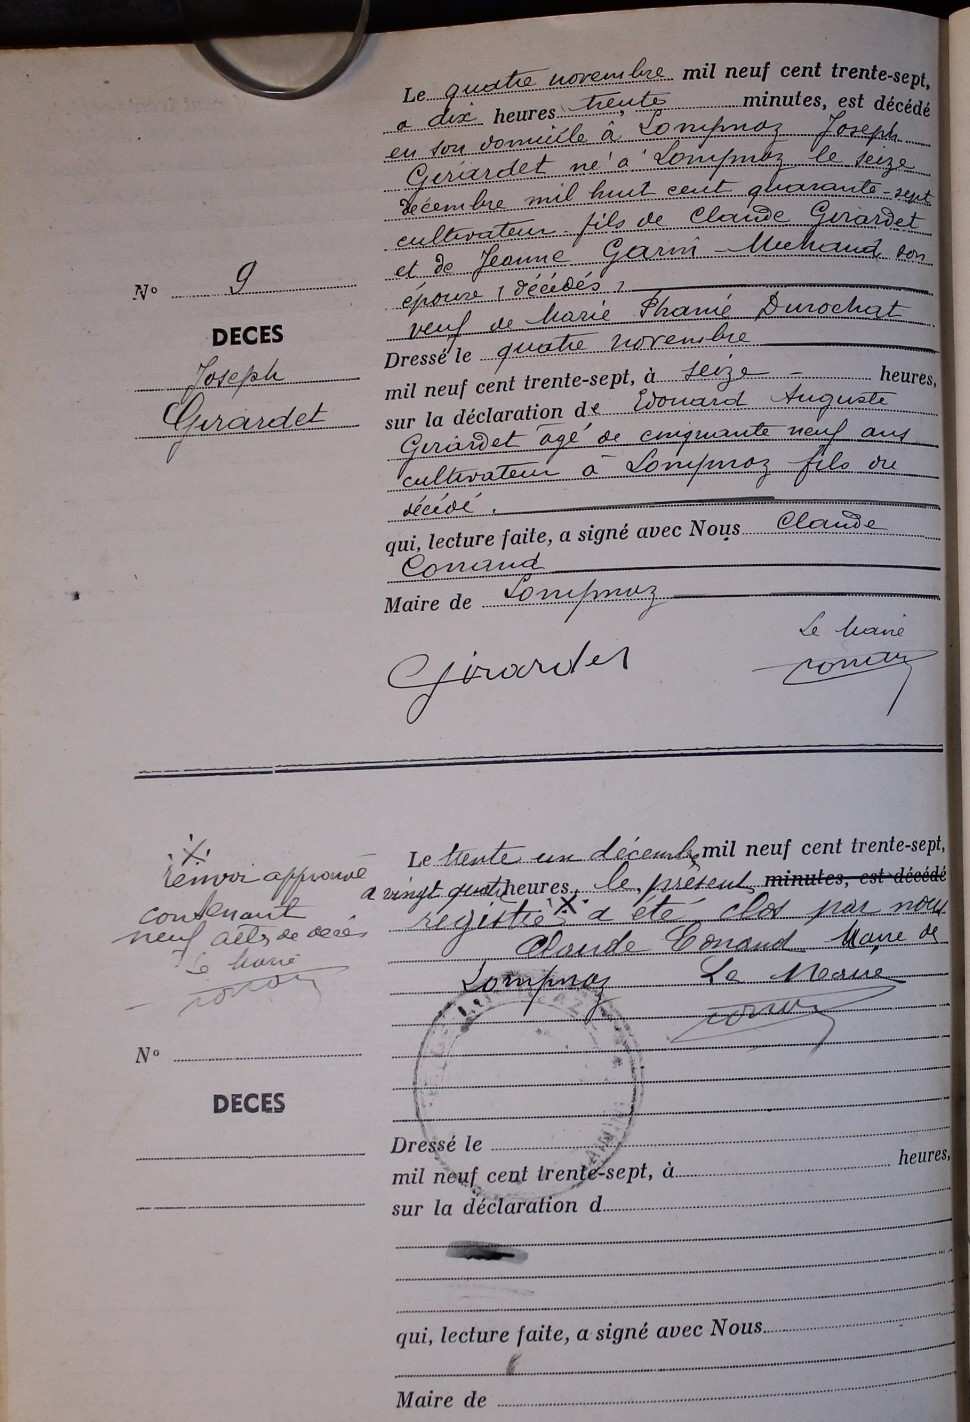 Le quatre novembre mil neuf cent trente-sept,
a dix heures trente minutes, est décédé
en son domicile à Lompnaz Joseph
Girardet né à Lompnaz le seize
décembre mil huit cent quarante-sept
cultivateur fils de Claude Girardet
et de Jeanne Garin-Michaud son
épouse, décédés,
veuf de Marie Phanie Durochat
Nº 9
DECES
Joseph
Girardet
Dressé le quatre novembre
mil neuf cent trente-sept, à seize heures,
sur la déclaration de Edouard Auguste
Girardet âgé de cinquante neuf ans
cultivateur à Lompnaz fils du
décédé.
qui, lecture faite, a signé avec Nous Claude
Conand
Maire de Lompnaz
Le Maire
Girardet Conand
X
renvoi approuvé
contenant
neuf actes de décès
Le Maire
Conand
Le trente un décembre mil neuf cent trente-sept,
a vingt quatre heures, le présent minutes, est décédé
registre X a été clos par nous
Claude Conand Maire de
Lompnaz Le Maire
Conand
Nº
DECES
Dressé le
mil neuf cent trente-sept, à heures,
sur la déclaration d
qui, lecture faite, a signé avec Nous
Maire de